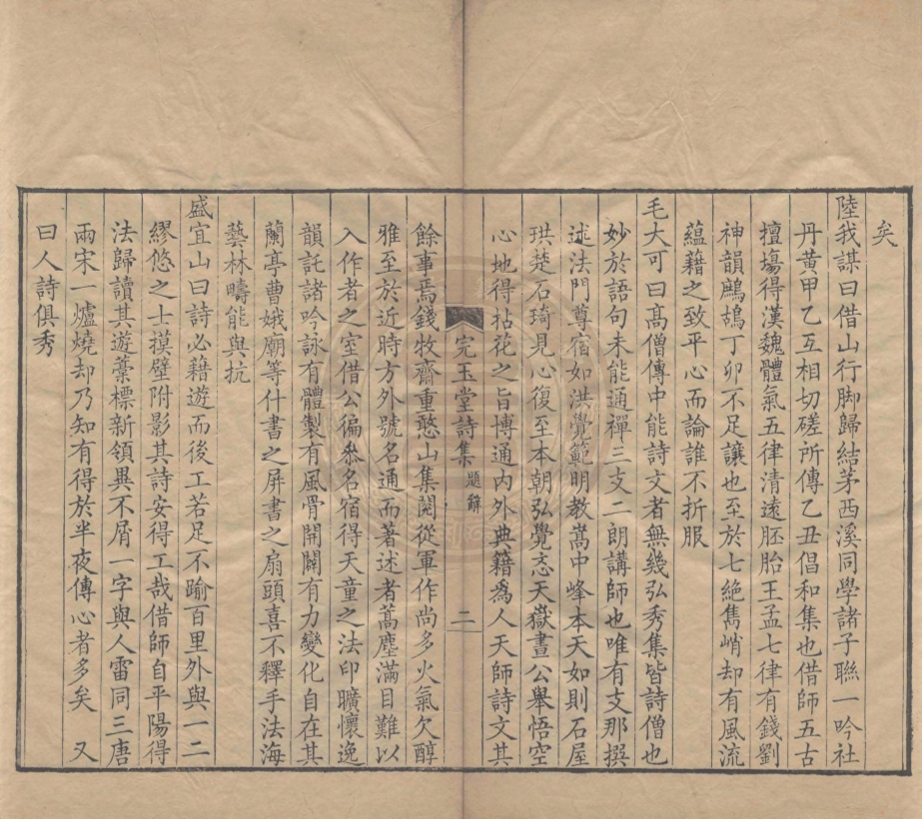 矣
陸我謀曰借山行脚歸結茅西溪同學諸子聯一吟社
丹黃甲乙互相切磋所傳乙丑倡和集也借師五古
擅塲得漢魏體氣五律清遠胚胎王孟七律有錢劉
神韻鷓鴣丁卯不足讓也至於七絶雋峭却有風流
蘊藉之致平心而論誰不折服
毛大可曰高僧傳中能詩文者無幾弘秀集皆詩僧也
妙於語句未能通禪三支二朗講師也唯有支那撰
述法門尊宿如洪覺範明教嵩中峰本天如則石屋
珙楚石琦見心復至本朝弘覺忞天嶽晝公舉悟空
心地得拈花之旨博通内外典籍爲人天師詩文其
完玉堂詩集 題辭 二
餘事焉錢牧齋重憨山集閱從軍作尚多火氣欠醇
雅至於近時方外號名通而著述者蒿塵滿目難以
入作者之室借公徧叅名宿得天童之法印曠懷逸
韻託諸吟詠有體製有風骨開闢有力變化自在其
蘭亭曹娥廟等什書之屏書之扇頭喜不釋手法海
藝林疇能與抗
盛宜山曰詩必藉遊而後工若足不踰百里外與一二
繆悠之士摸壁附影其詩安得工哉借師自平陽得
法歸讀其遊藁標新領異不屑一字與人雷同三唐
兩宋一爐燒却乃知有得於半夜傳心者多矣 又
曰人詩俱秀